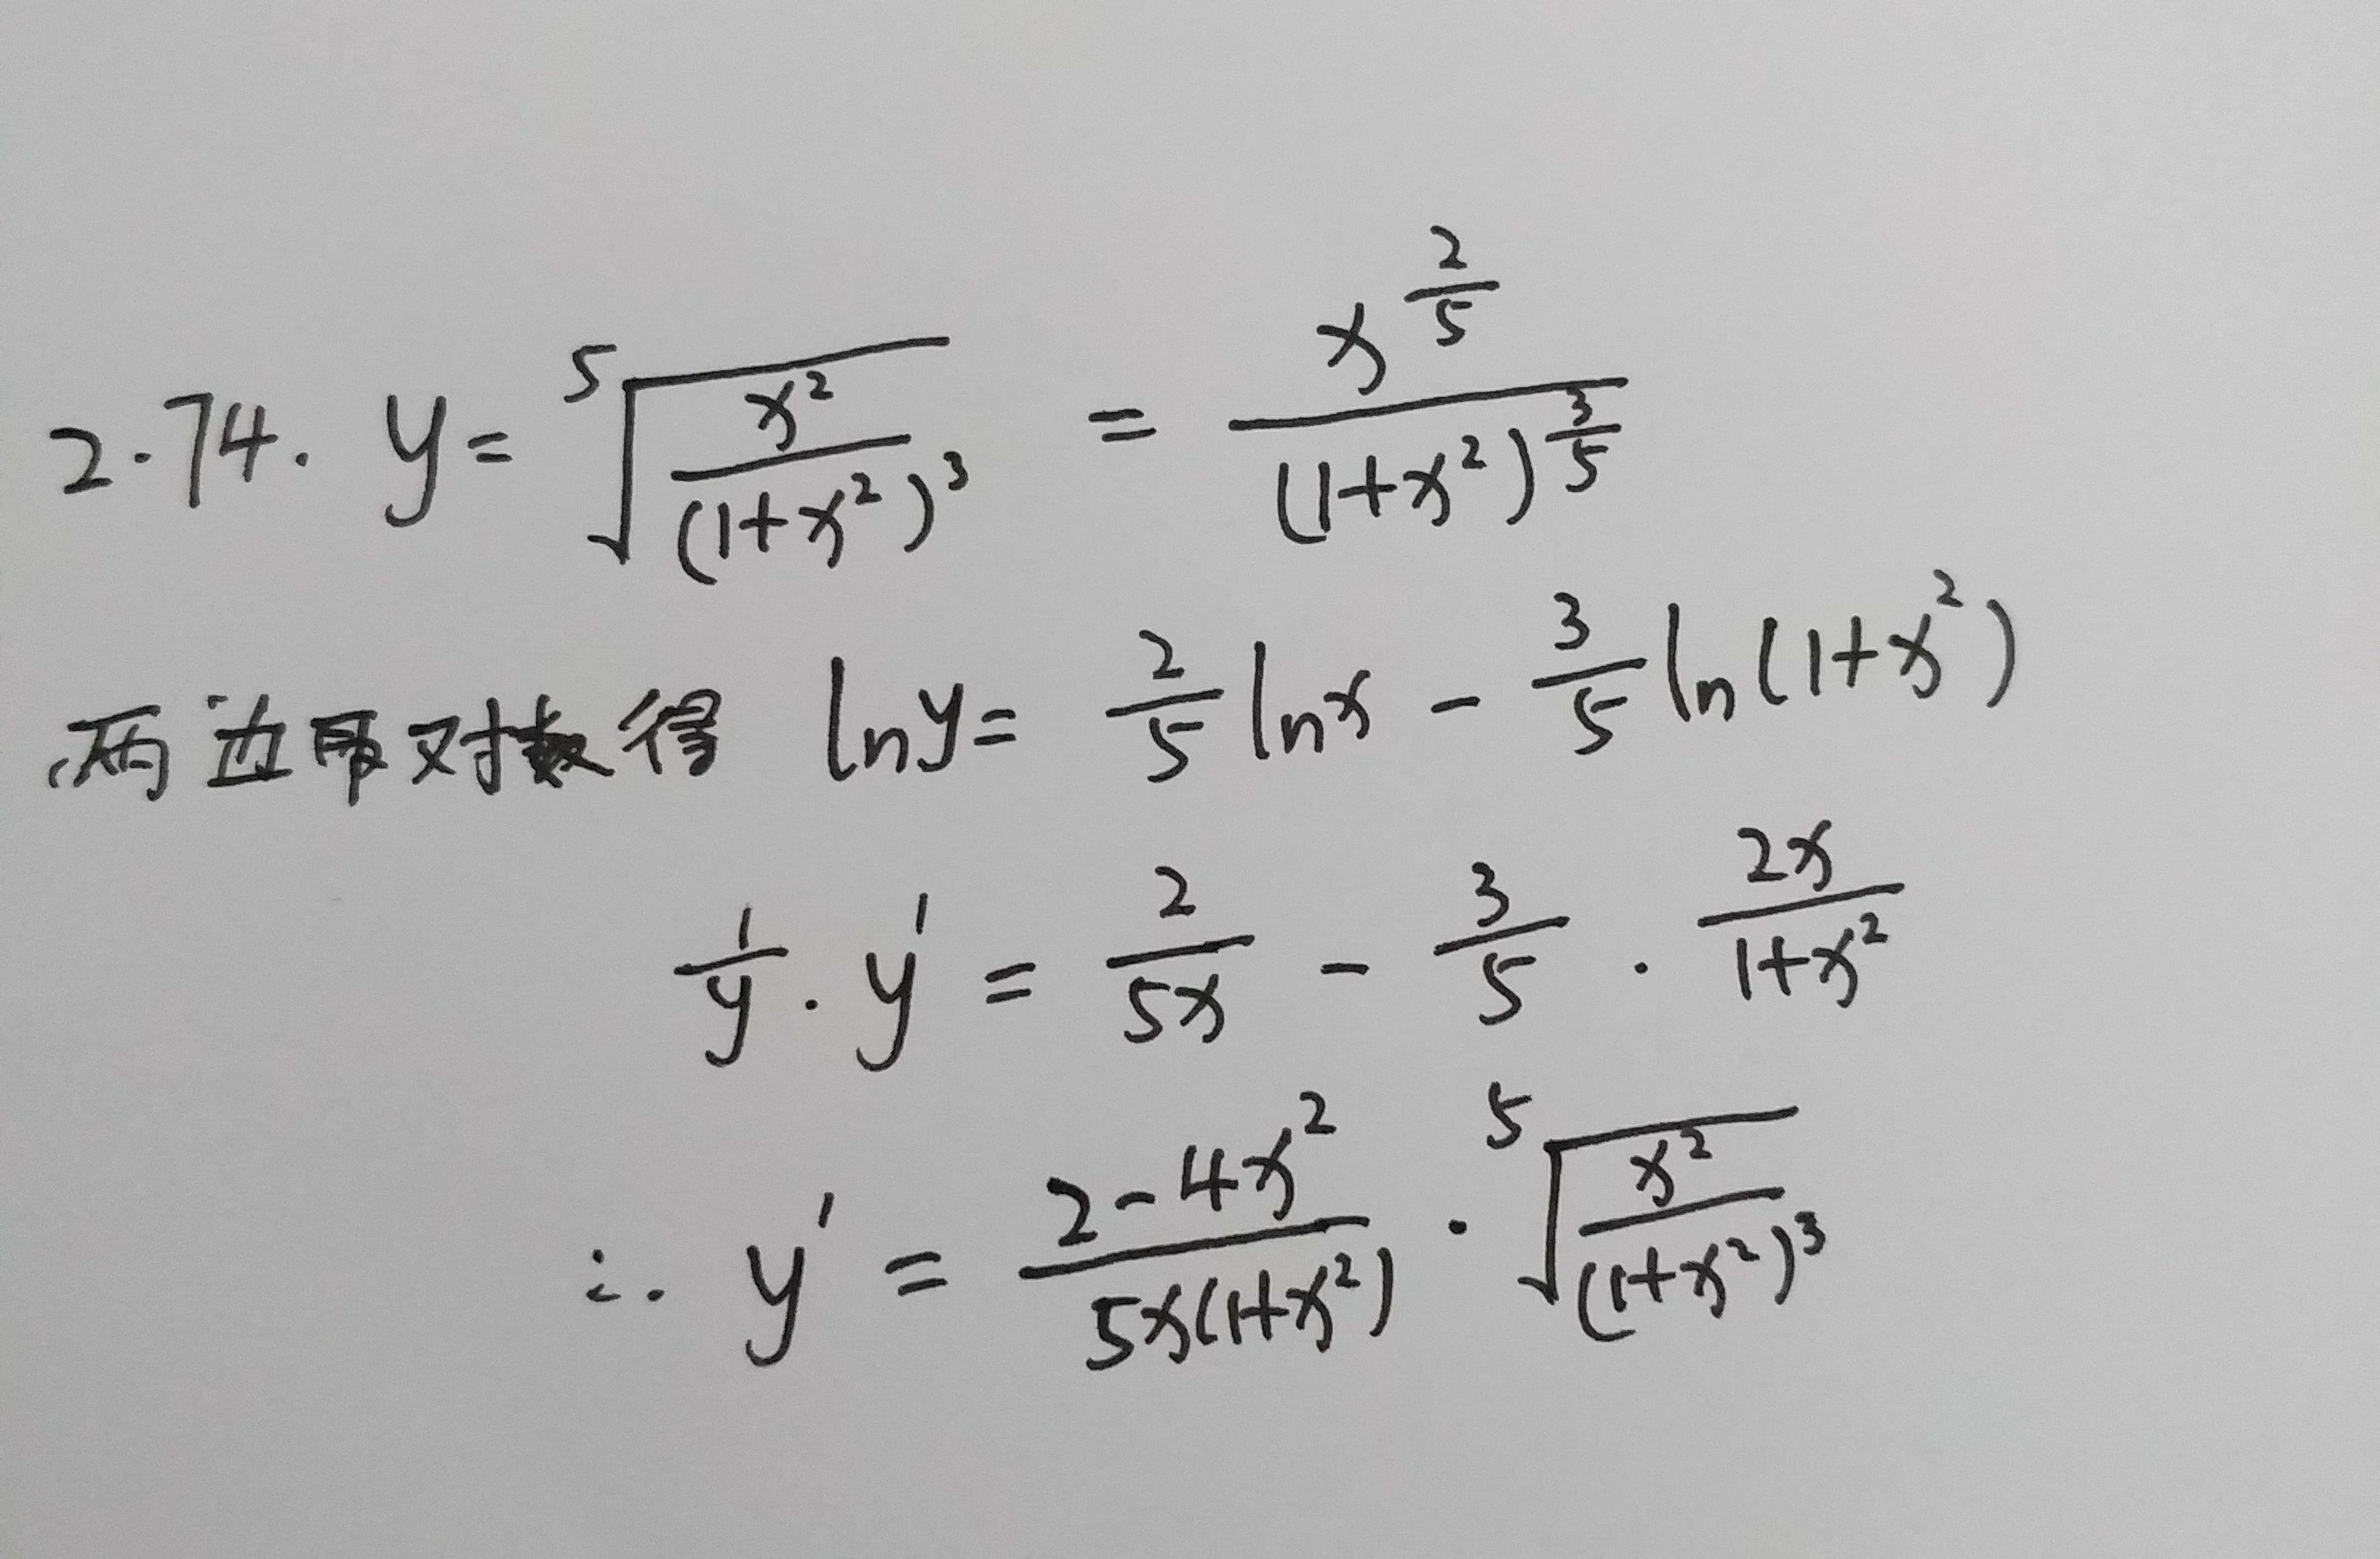 2.74. y = \sqrt[5]{\frac{x^2}{(1+x^2)^3}} = \frac{x^{\frac{2}{5}}}{(1+x^2)^{\frac{3}{5}}}
两边取对数得 ln y = \frac{2}{5} ln x - \frac{3}{5} ln(1+x^2)
\frac{1}{y} · y' = \frac{2}{5x} - \frac{3}{5} · \frac{2x}{1+x^2}
∴ y' = \frac{2-4x^2}{5x(1+x^2)} · \sqrt[5]{\frac{x^2}{(1+x^2)^3}}